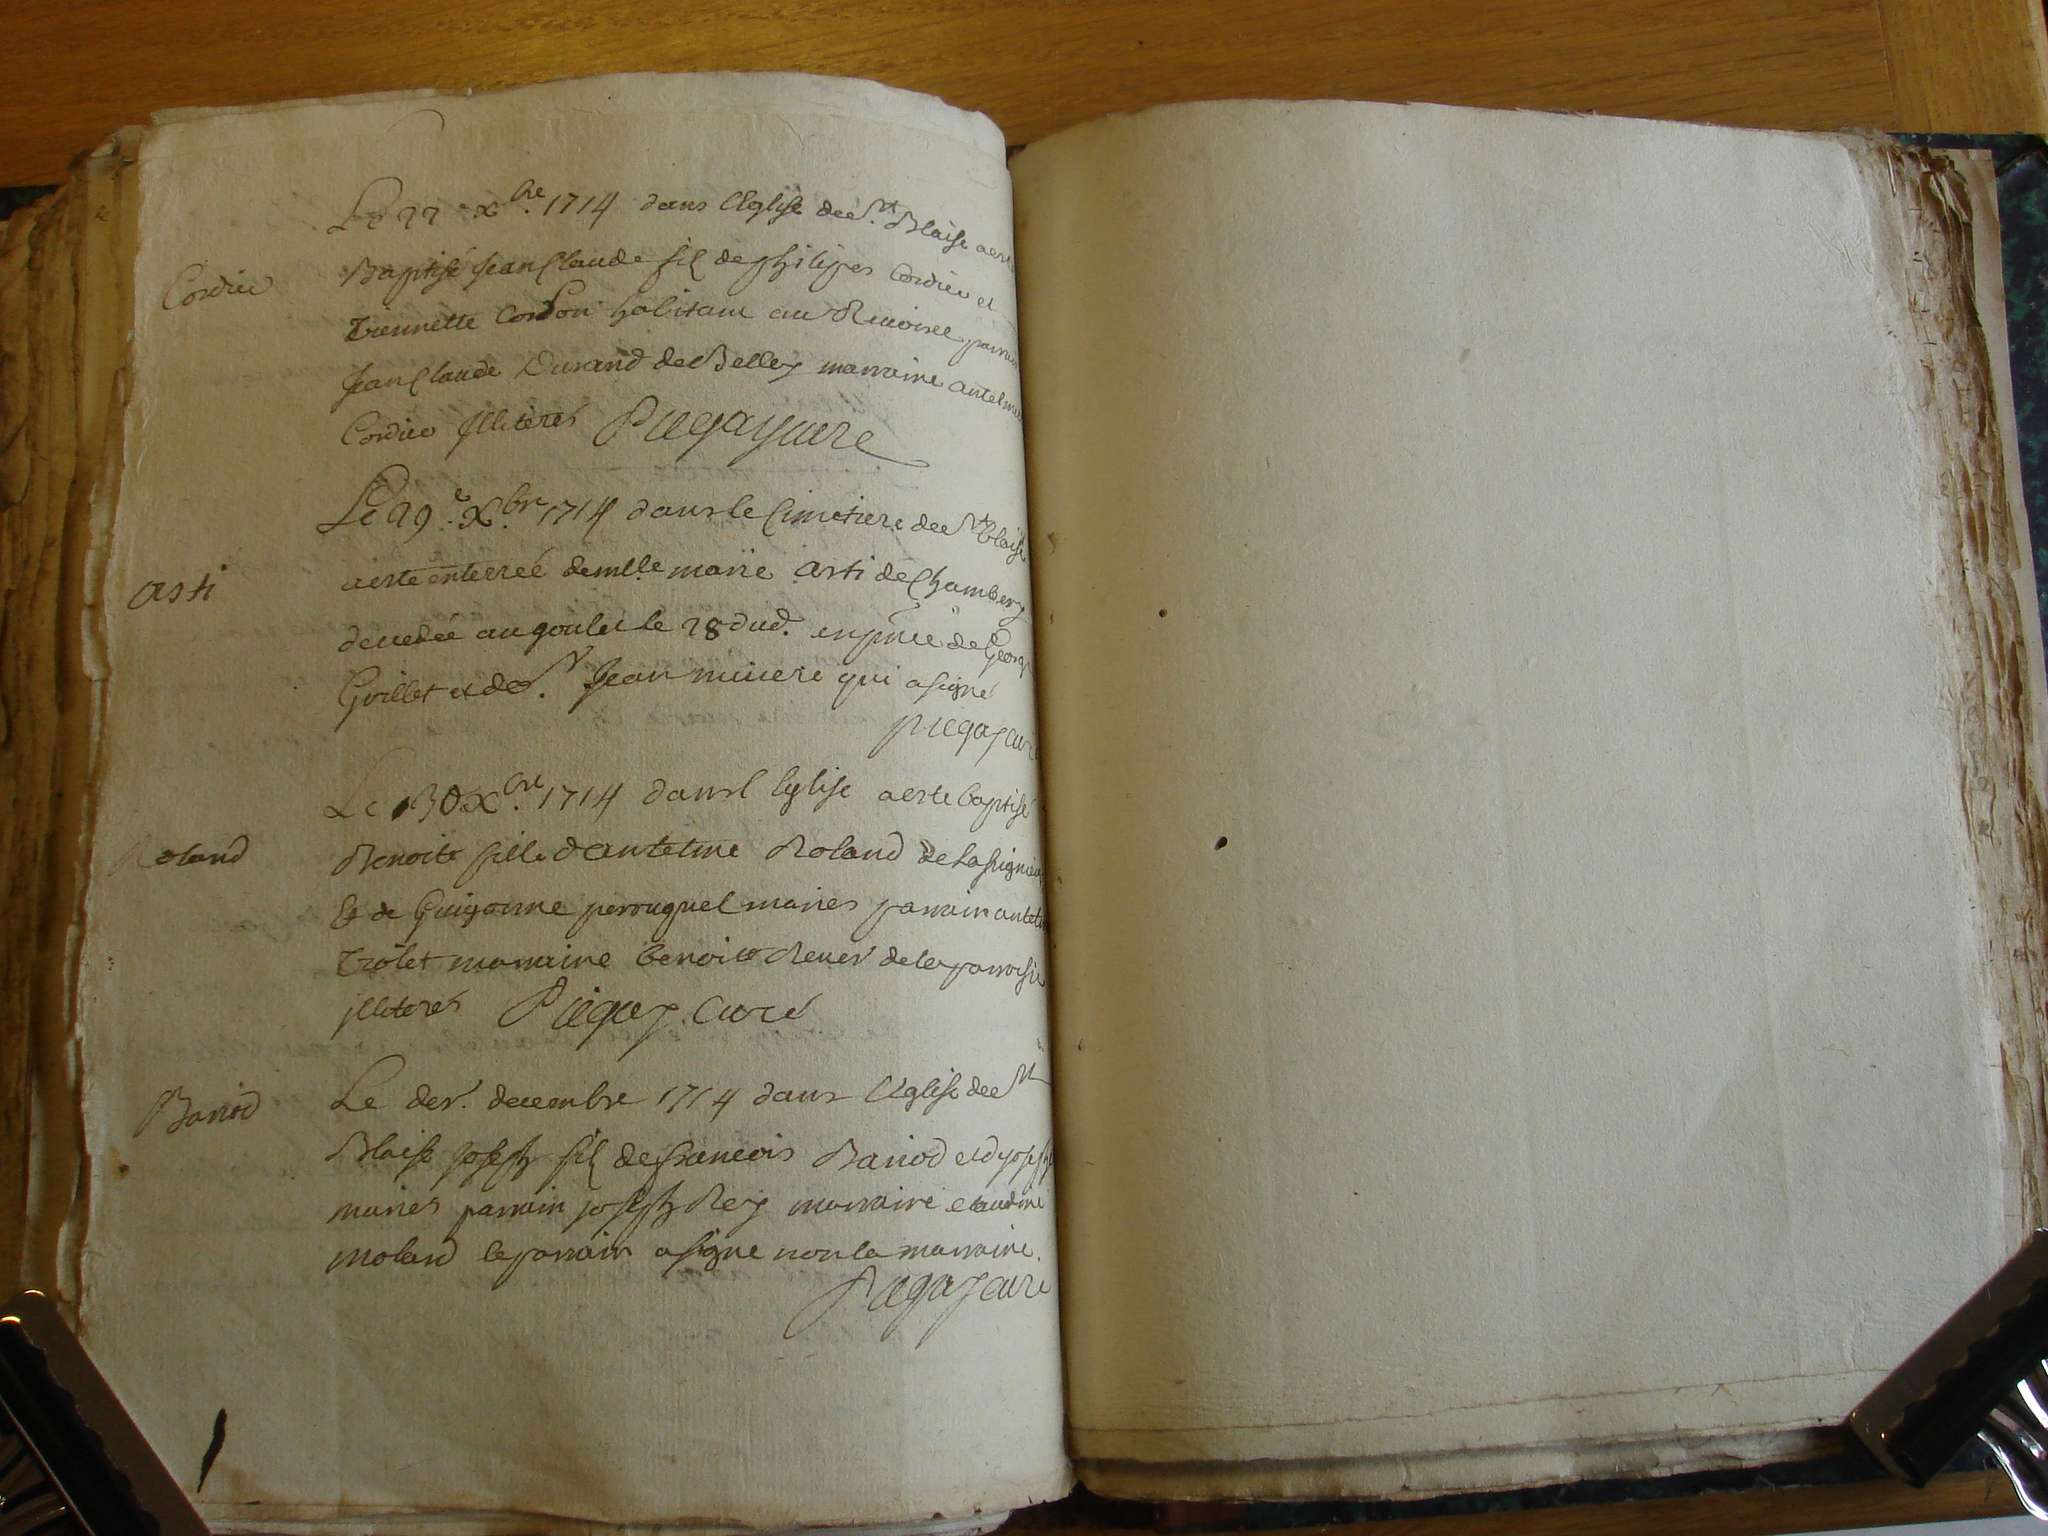 Le 27 Xbre. 1714 dans l'Eglise de St. Blaise a este
Cordier
Baptisé Jean Claude fil de philipes Cordier et
Tiennette Cordon habitant au parrain
Jean Claude Durand de Belley marraine antelme
Cordier Illiteres Picgay curé
Le 29e. Xbre 1714 dans le Cimetiere de St Blaise
Asti
a este enterreé demlle. marie Asti de Chambery
decedée au goulet le 28 dud. en pnce de George
Guillet et de Sr. Jean qui a signé
picgay curé
Le 30 Xbre. 1714 dans l Eglise a este baptisé
Roland
Benoite fille d'antelme Roland de
Et de Guigonne perouquel maries parrain antelme
Trolet marraine benoite de la parroisse
jlliteres Picgay Curé
Bariod
Le der. decembre 1714 dans l'Eglise de St
Blaise Joseph fil de francois Bariod et
maries parrain joseph Rey marraine claudine
molard le parrain a signe non la marraine.
Picgay curé